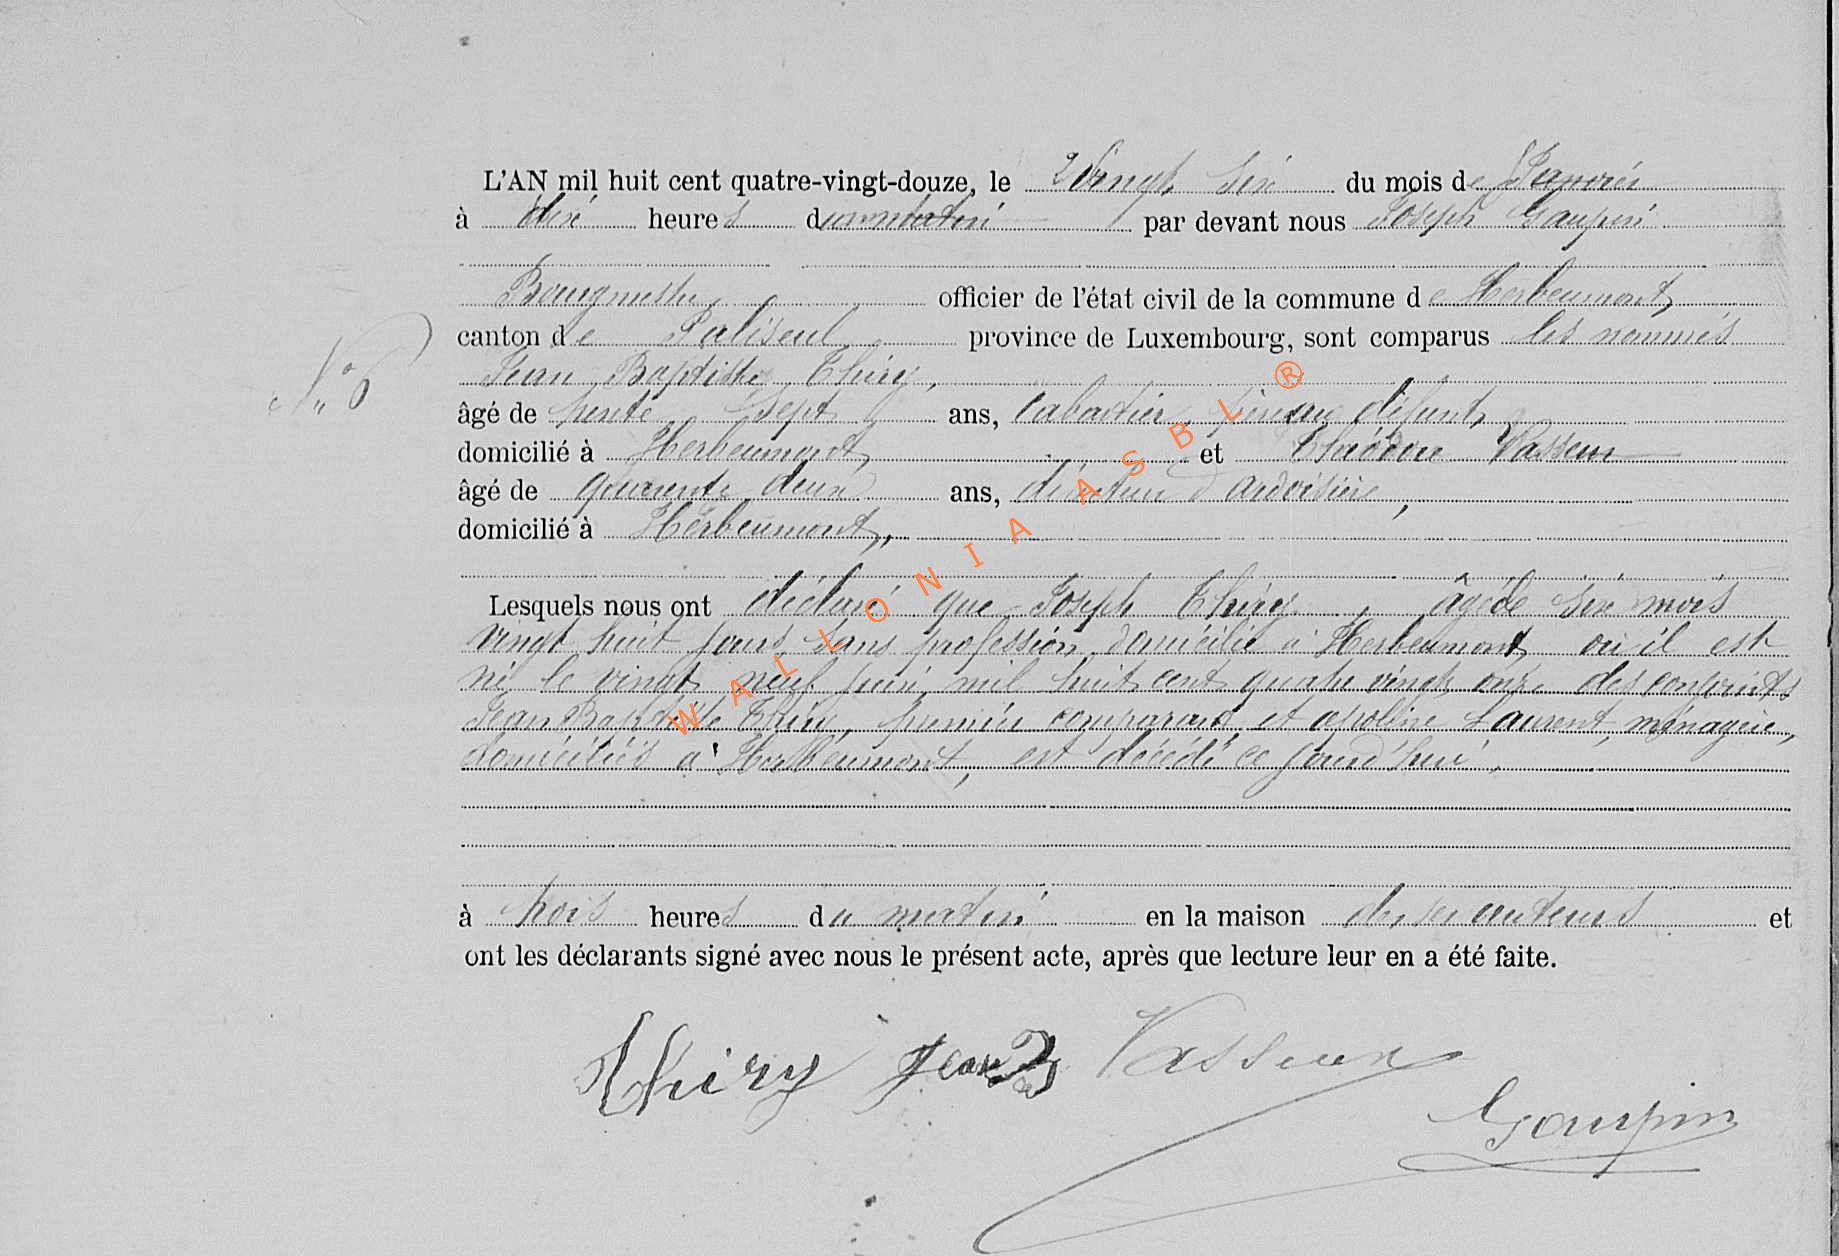 L'AN mil huit cent quatre-vingt-douze, le vingt six du mois de Janvier
à dix heures du matin par devant nous Joseph Gaupin
Bourgmestre officier de l'état civil de la commune de Herbeumont,
canton de Paliseul province de Luxembourg, sont comparus les nommés
N° 6
Jean Baptiste Thiry,
âgé de trente sept ans, cabaretier père du défunt,
domicilié à Herbeumont, et Théodore Vasseur
âgé de quarante deux ans, directeur d'ardoisière,
domicilié à Herbeumont,
Lesquels nous ont déclaré que Joseph Thiry, âgé de six mois
vingt huit jours, sans profession, domicilié à Herbeumont où il est
né le vingt neuf juin mil huit cent quatre vingt onze des conjoints
Jean Baptiste Thiry, premier comparant, et apolline Laurent, ménagère,
domiciliés à Herbeumont, est décédé ce jourd'hui,
à trois heures du matin en la maison de ses auteurs et
ont les déclarants signé avec nous le présent acte, après que lecture leur en a été faite.
Thiry Jean B Vasseur
Gaupin
WALLONIA ASBL ®